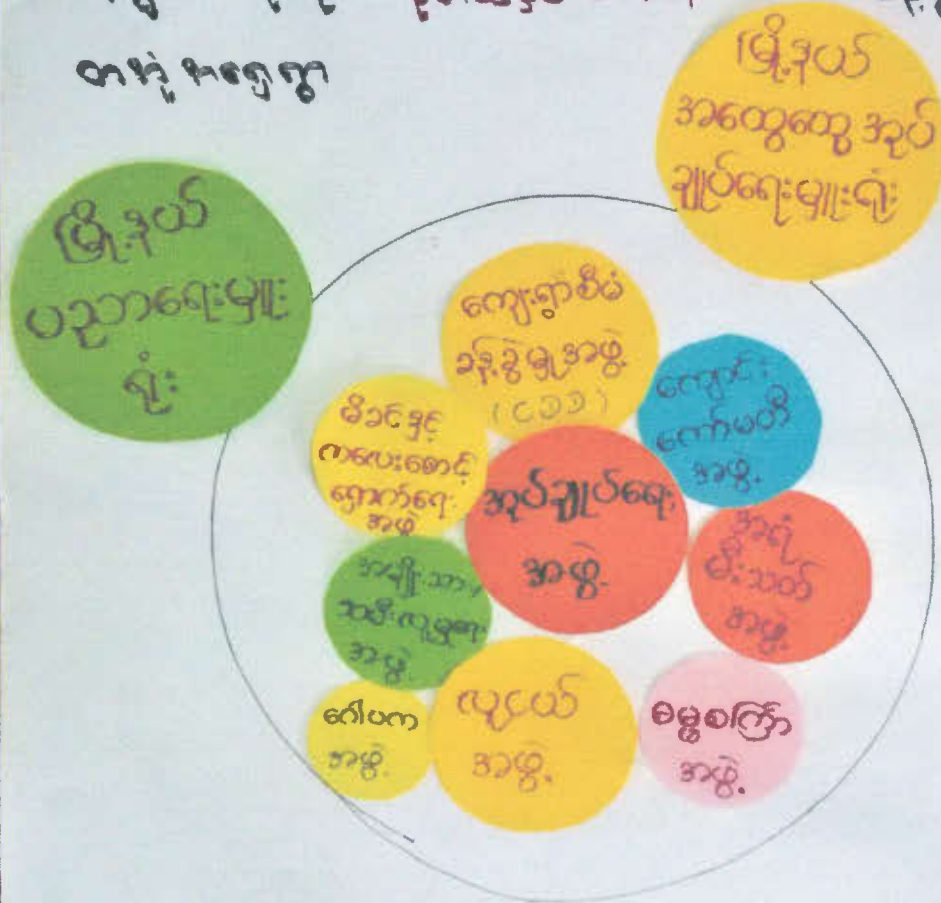 တာအုံအရှေ့ရွာ
မြို့နယ်
အထွေထွေ အုပ်
ချုပ်ရေးမှူးရုံး
မြို့နယ်
ပညာရေးမှူး
ရုံး
ကျေးရွာစီမံ
ခန့်ခွဲမှုအဖွဲ့
(CDD)
ကျောင်း
ကော်မတီ
အဖွဲ့
မိခင်နှင့်
ကလေးစောင့်
ရှောက်ရေး
အဖွဲ့
အုပ်ချုပ်ရေး
အဖွဲ့
အရံ
မီးသတ်
အဖွဲ့
အမျိုးသား၊
အမျိုးသမီးရေးရာ
အဖွဲ့
ဂေါပက
အဖွဲ့
လူငယ်
အဖွဲ့
ဓမ္မစကြာ
အဖွဲ့